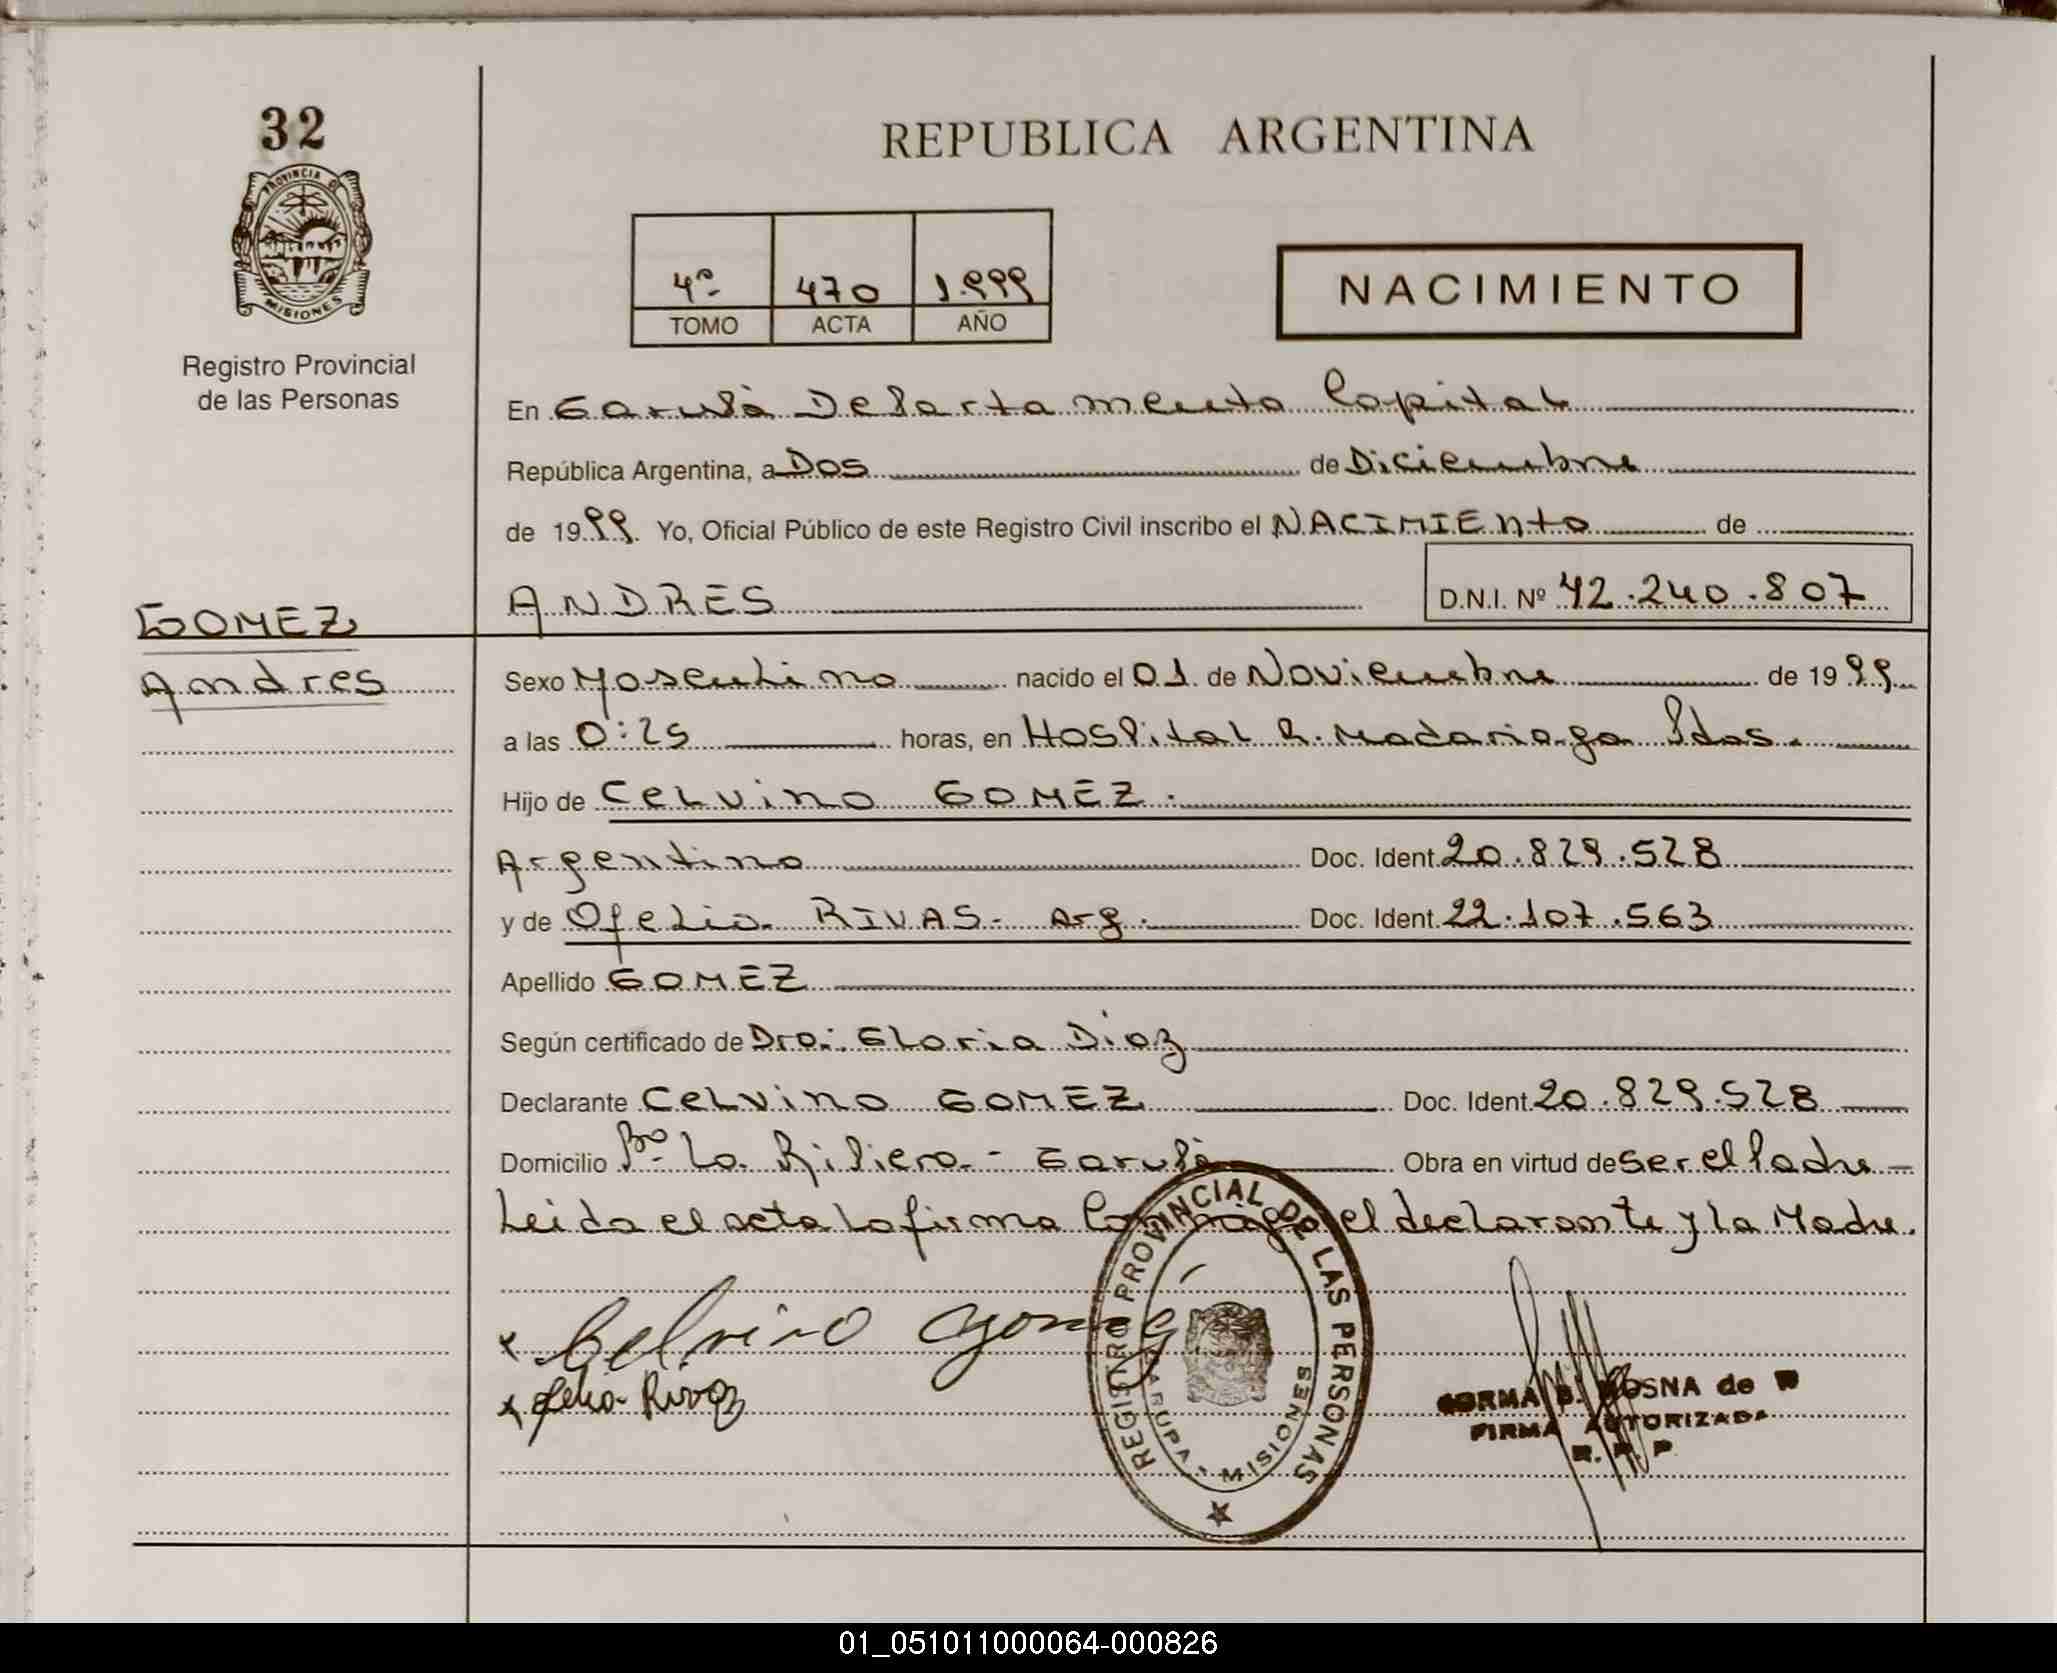 32
PROVINCIA DE
MISIONES
Registro Provincial
de las Personas
REPUBLICA ARGENTINA
4º 470 1.999
TOMO ACTA AÑO
NACIMIENTO
En Garupá Departamento Capital
República Argentina, a Dos de Diciembre
de 1999 Yo, Oficial Público de este Registro Civil inscribo el NACIMIENTO de
ANDRES D.N.I. Nº 42.240.807
GOMEZ
Andres
Sexo Masculino nacido el 01 de Noviembre de 1999
a las 0:25 horas, en Hospital R. Madariaga Pdas.
Hijo de Celvino GOMEZ.
Argentino Doc. Ident. 20.829.528
y de Ofelia RIVAS- Arg. Doc. Ident. 22.107.563
Apellido GOMEZ
Según certificado de Dra: Gloria Diaz
Declarante Celvino GOMEZ Doc. Ident. 20.829.528
Domicilio Bº La Rivera - Garupá Obra en virtud de ser el Padre
Leida el acta la firma Conmigo el declarante y la Madre.
x Celvino Gomez
x Ofelia Rivaz
REGISTRO PROVINCIAL DE LAS PERSONAS
GARUPA, MISIONES
NOSNA de
FIRMA AUTORIZADA
R. P. P.
01_051011000064-000826